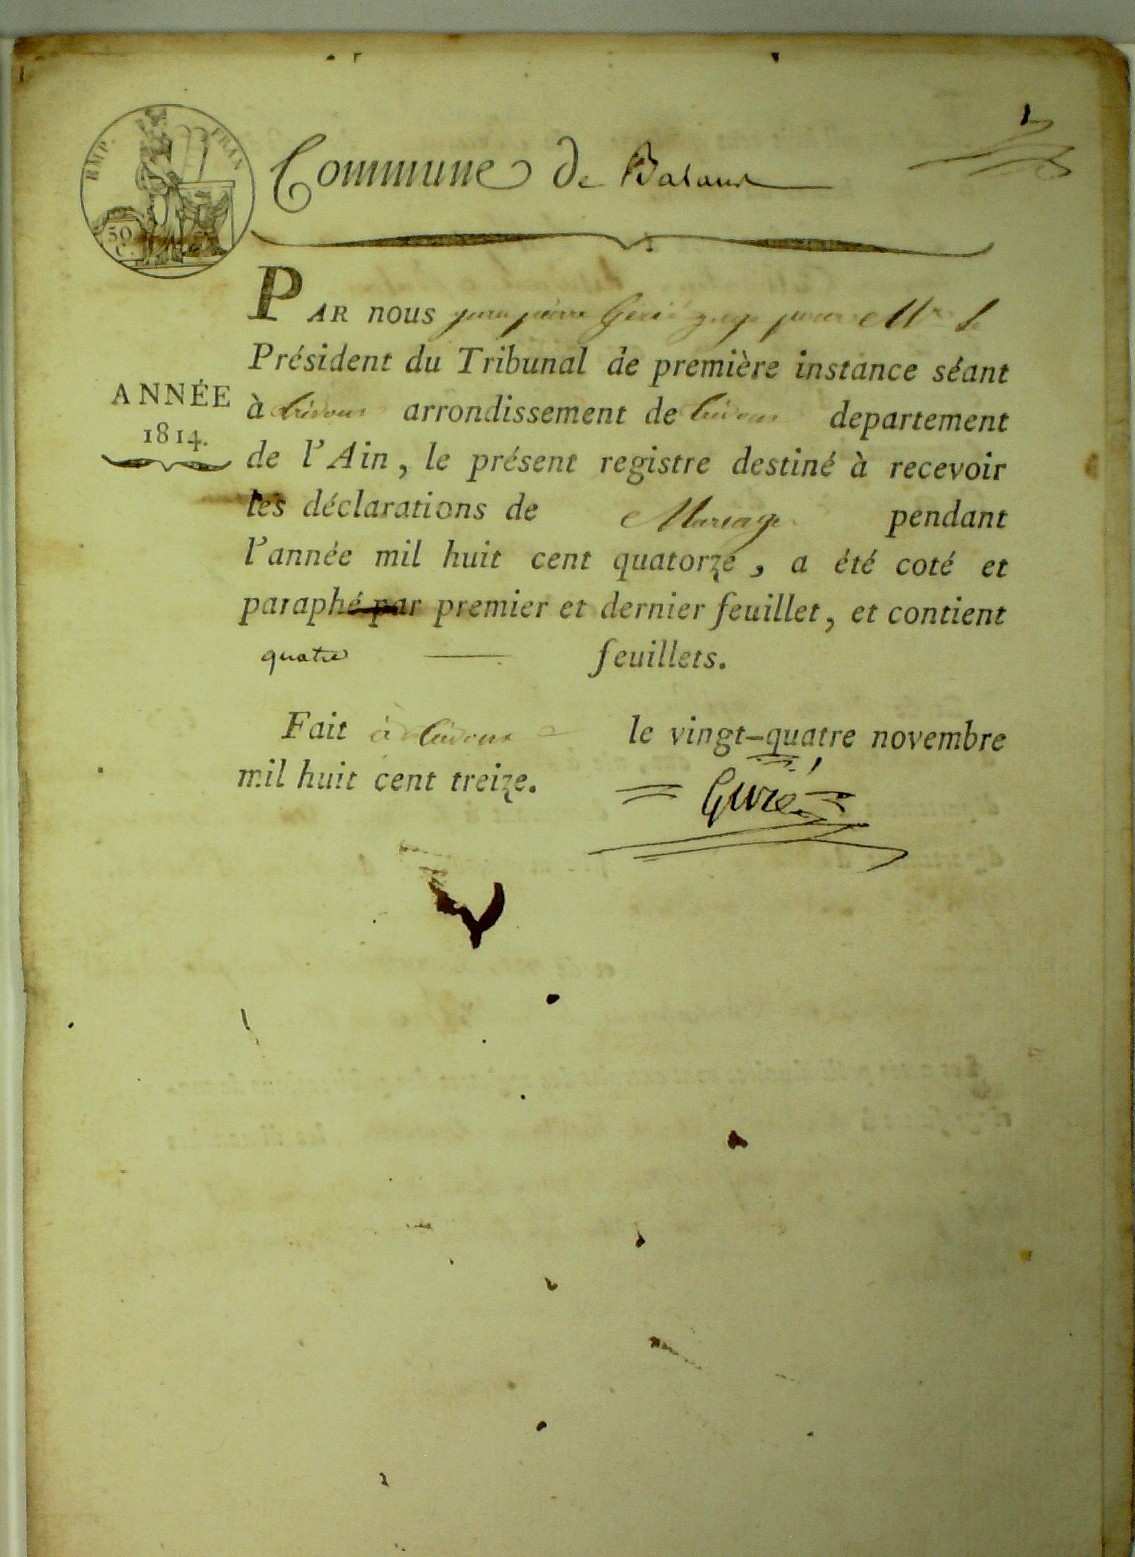 EMP. FRAN
30
C.
Commune de Balan
1
PAR nous jean pierre Giré juge pour Mr le
Président du Tribunal de première instance séant
à trévoux arrondissement de trévoux departement
ANNÉE
1814.
de l'Ain, le présent registre destiné à recevoir
les déclarations de Mariage pendant
l'année mil huit cent quatorze, a été coté et
paraphé par premier et dernier feuillet, et contient
quatre feuillets.
Fait à trévoux le vingt-quatre novembre
mil huit cent treize.